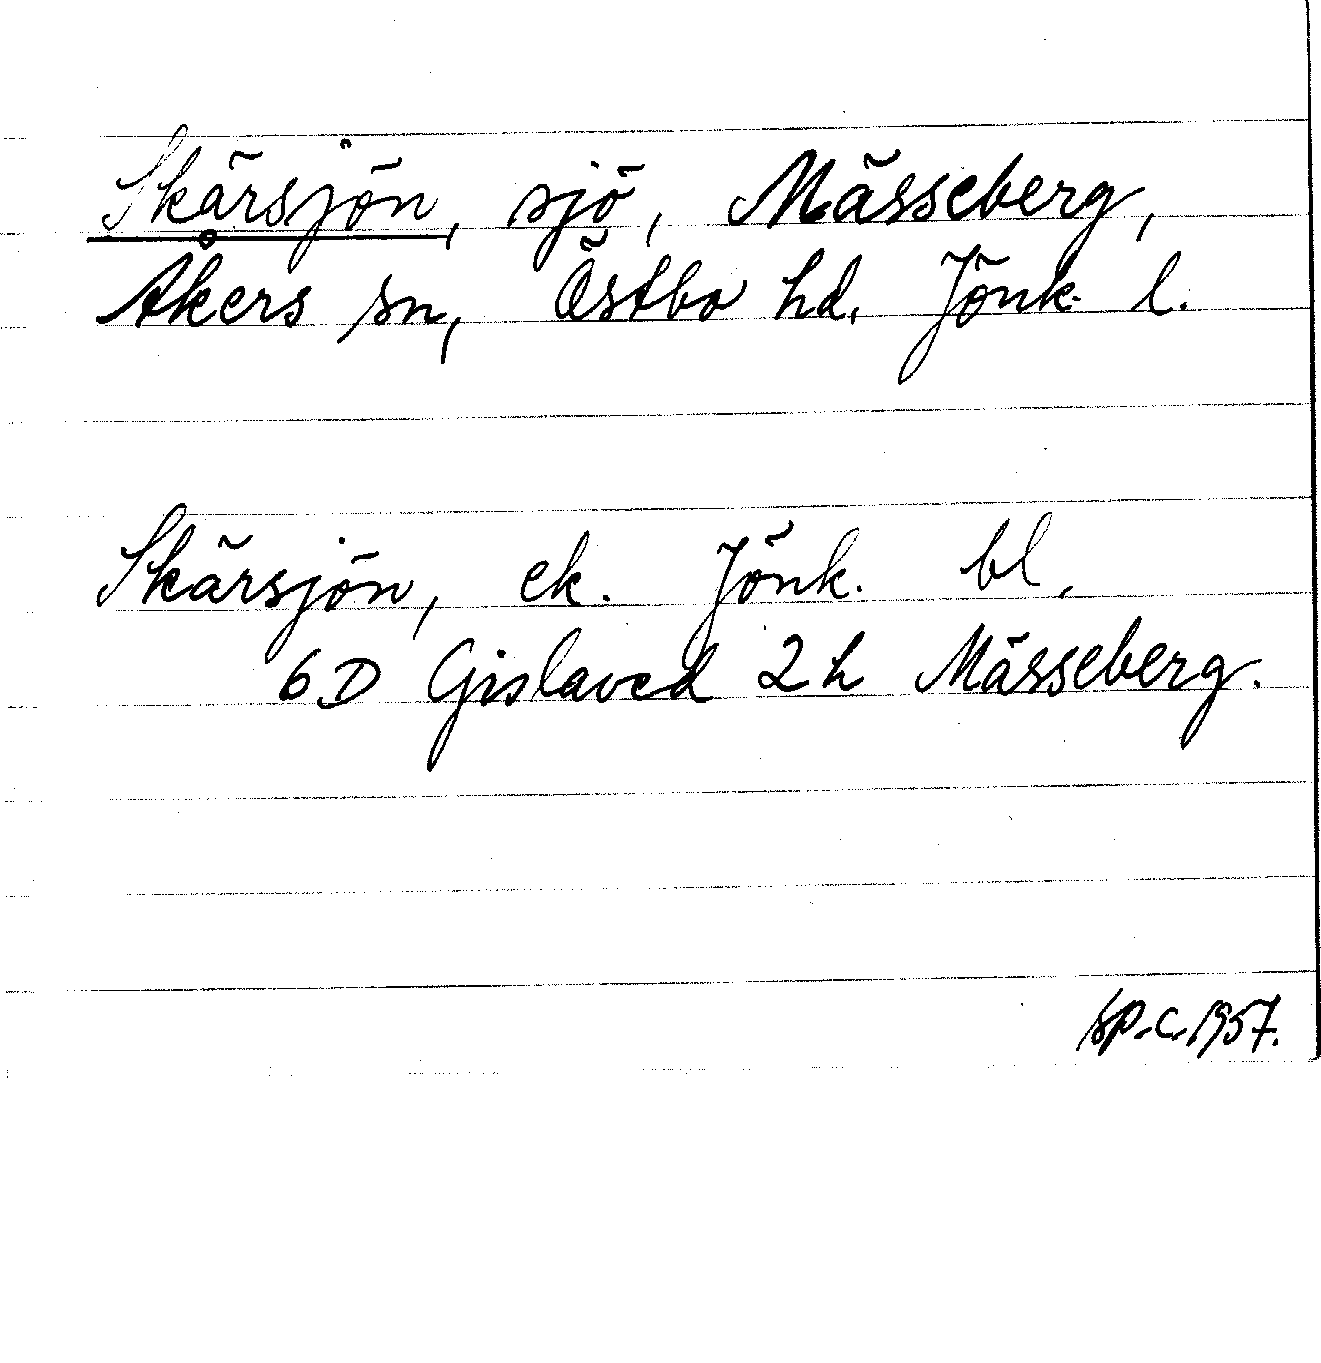 Skärsjön, sjö, Mässeberg,
Åkers sn, Östbo hd. Jönk. l.
Skärsjön, ek. Jönk. bl,
6D Gislaved 2h Mässeberg.
SP-C-1957.